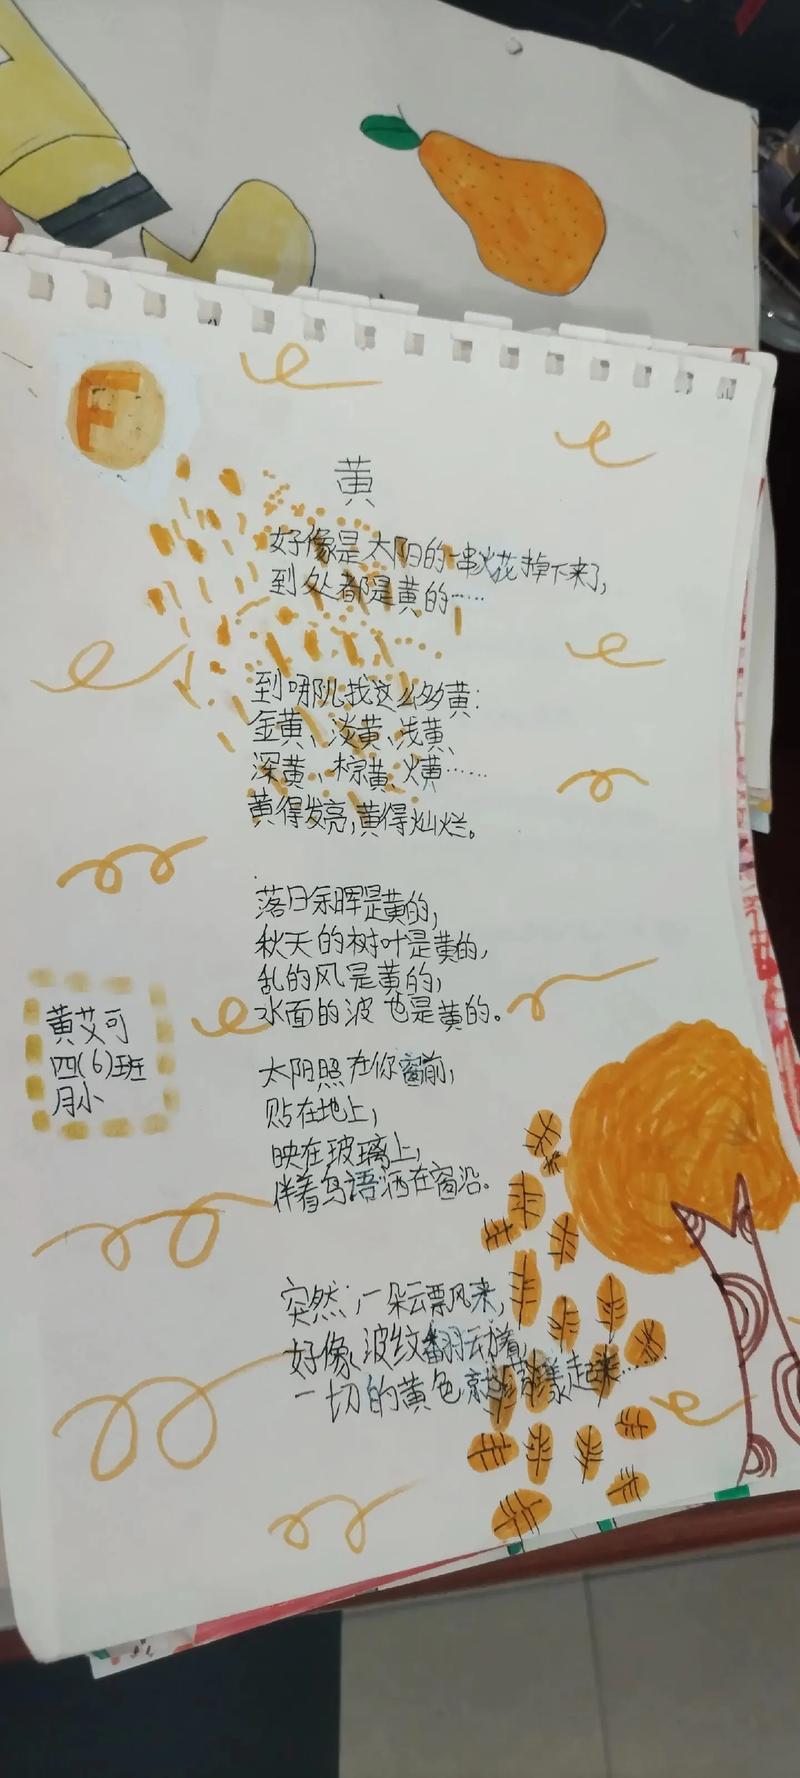 F
黄
好像是太阳的一串火花掉下来了,
到处都是黄的……
到哪儿找这么多黄:
金黄、淡黄、浅黄、
深黄、棕黄、……
黄得发亮,黄得灿烂。
落日余晖是黄的,
秋天的树叶是黄的,
乱的风是黄的,
水面的波也是黄的。
黄艾可
四(6)班
月小
太阳照在你窗前,
贴在地上,
映在玻璃上,
伴着鸟语洒在窗沿。
突然,一朵云飘风来,
好像波纹翻动着,
一切的黄色就荡漾起来……